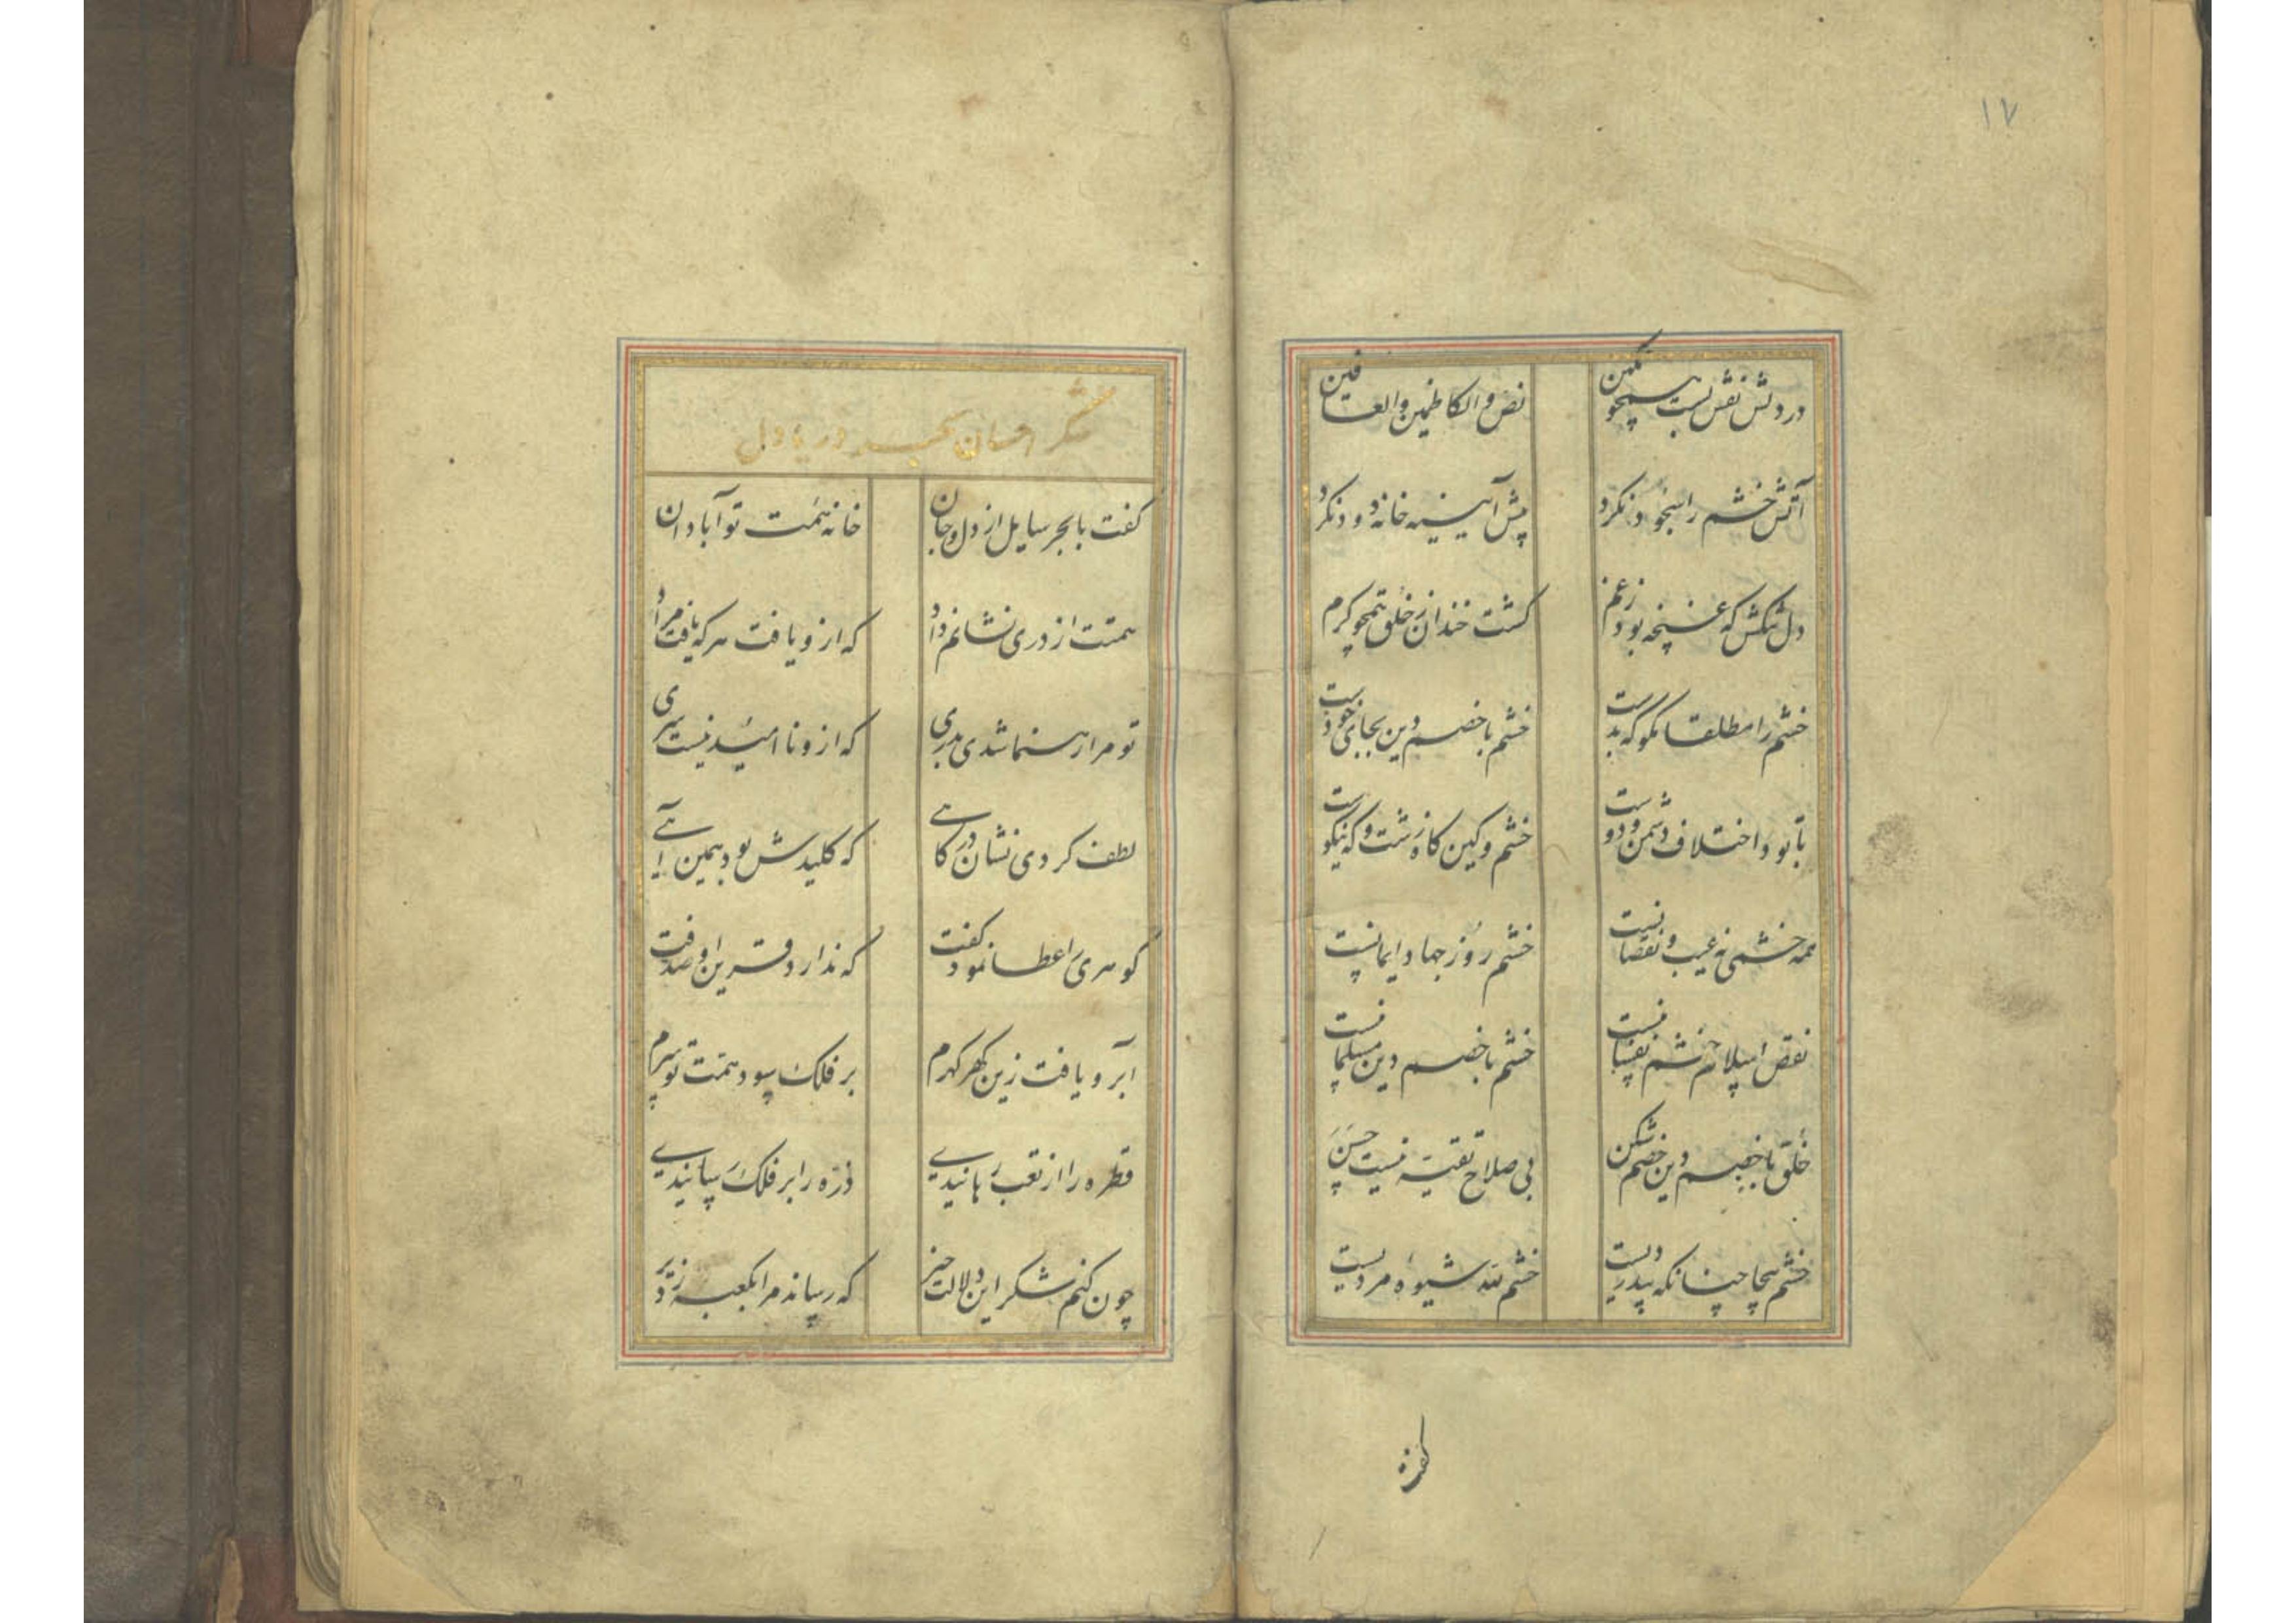 ۱۷
در دلش نقش بست همچو نگین
نص والکاظمین والعافین
آتش خشم را بخود نکرد
پیش آیینه خانه دود نکرد
دل تنگش که غنچه بود ز غم
گشت خندان ز خلق همچو کرم
خشم را مطلقا مگو که بدست
خشم با خصم دین بجای خودست
تا بود اختلاف دشمن و دوست
خشم و کین گاه زشت و گه نیکوست
همه خشمی نه عیب و نقصانیست
خشم روز جهاد ایمانیست
نقص اسلام خشم نفسانیست
خشم با خصم دین مسلمانیست
خلق با خصم دین خصم شکن
بی صلاح تقیه نیست حسن
خشم بیجا چنانکه بدردیست
خشم لله شیوه مردیست
گفت
شکر احسان بحر دریا دل
گفت با بحر سایل از دل و جان
خانه همت تو آبادان
همتت از دری نشانم داد
که ازو یافت هر که یافت مراد
تو مرا رهنما شدی بدری
که ازو ناامید نیست سری
لطف کردی نشان درگاهی
که کلیدش بود همین آهی
گوهری را عطا نمود کفت
که ندارد قرین او صدفت
آبرو یافت زین گهر گهرم
بر فلک سود همت تو سرم
قطره را از تعب رهانیدی
ذره را بر فلک رسانیدی
چون کنم شکر این دلالت خیر
که رساند مرا بکعبه ز دیر